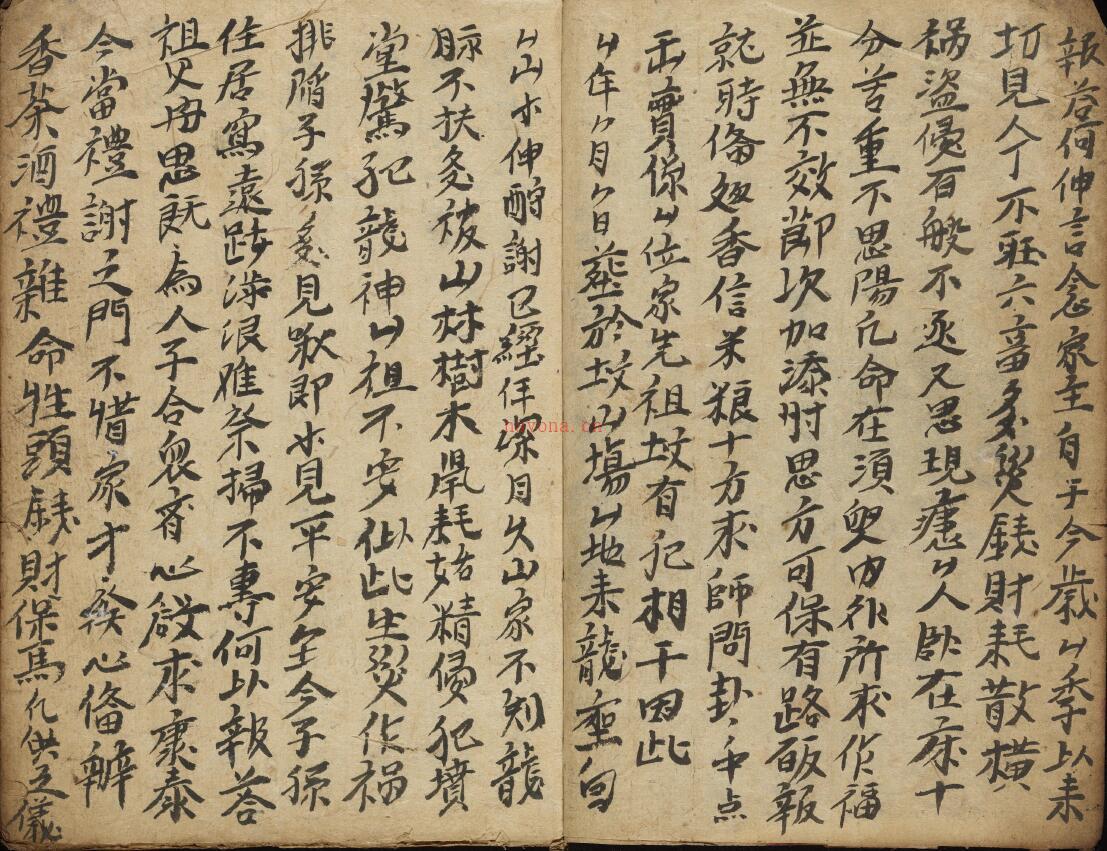 報答何伸言念家主自于今歲厶季以来
切見人丁不旺六畜多災錢財耗散橫
禍盜侵百般不丞又思現患厶人臥在床十
分苦重不思陽凡命在須臾內外所求作福
並無不效節次加添忖思方可保有路皈報
就時俻迎香信米粮十方求師問卦卦中点
出賣係厶位家先祖坟有犯相干因此
厶年厶月厶日塟於坟山塲厶地来龍座向
厶山亦伸酧謝已經年深月久山家不利龍
脉不扶多被山林樹木鼠耗姑精侵犯墳
堂驚犯龍神厶祖不安似此生災作禍
排陷子孫多見歎即亦見平安全今子孫
住居寫遠跋涉艰难祭掃不專何以報答
祖父母思既為人子合衆齊心啟求康泰
今當禮謝之門不惜家才發心俻辦
香茶酒禮雜命牲頭錢財保馬凡供之儀
novona.cn